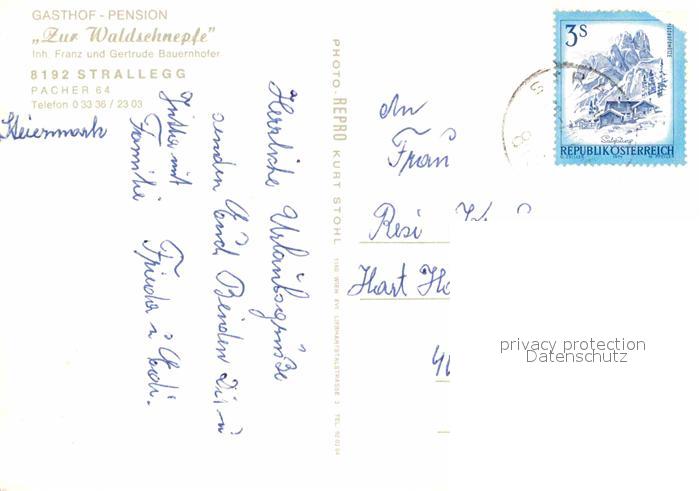 GASTHOF - PENSION
„Zur Waldschnepfe"
Inh. Franz und Gertrude Bauernhofer
8192 STRALLEGG
PACHER 64
Telefon 0 33 36 / 23 03
Steiermark
Herrliche Urlaubsgrüße
senden Euch Beiden
mit
Familie Frieda u
PHOTO-REPRO KURT STOHL 1160 WIEN XVI LIEBHARTSTALSTRASSE 2 TEL.
An
Frau
Resi
Hart
3 S
REPUBLIK ÖSTERREICH
privacy protection
Datenschutz